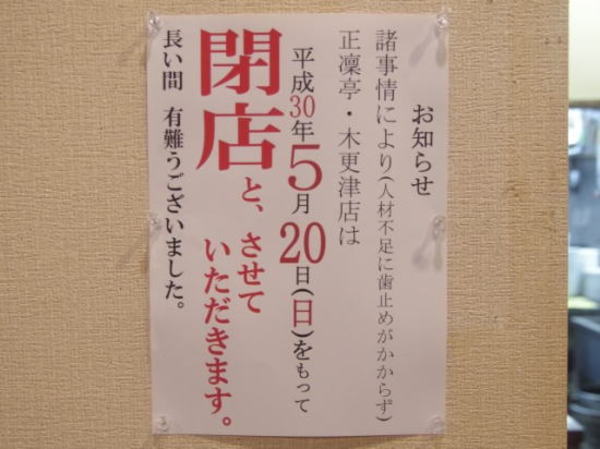 お知らせ
諸事情により(人材不足に歯止めがかからず)
正凜亭・木更津店は
平成30年5月20日(日)をもって
閉店と、させて
いただきます。
長い間 有難うございました。